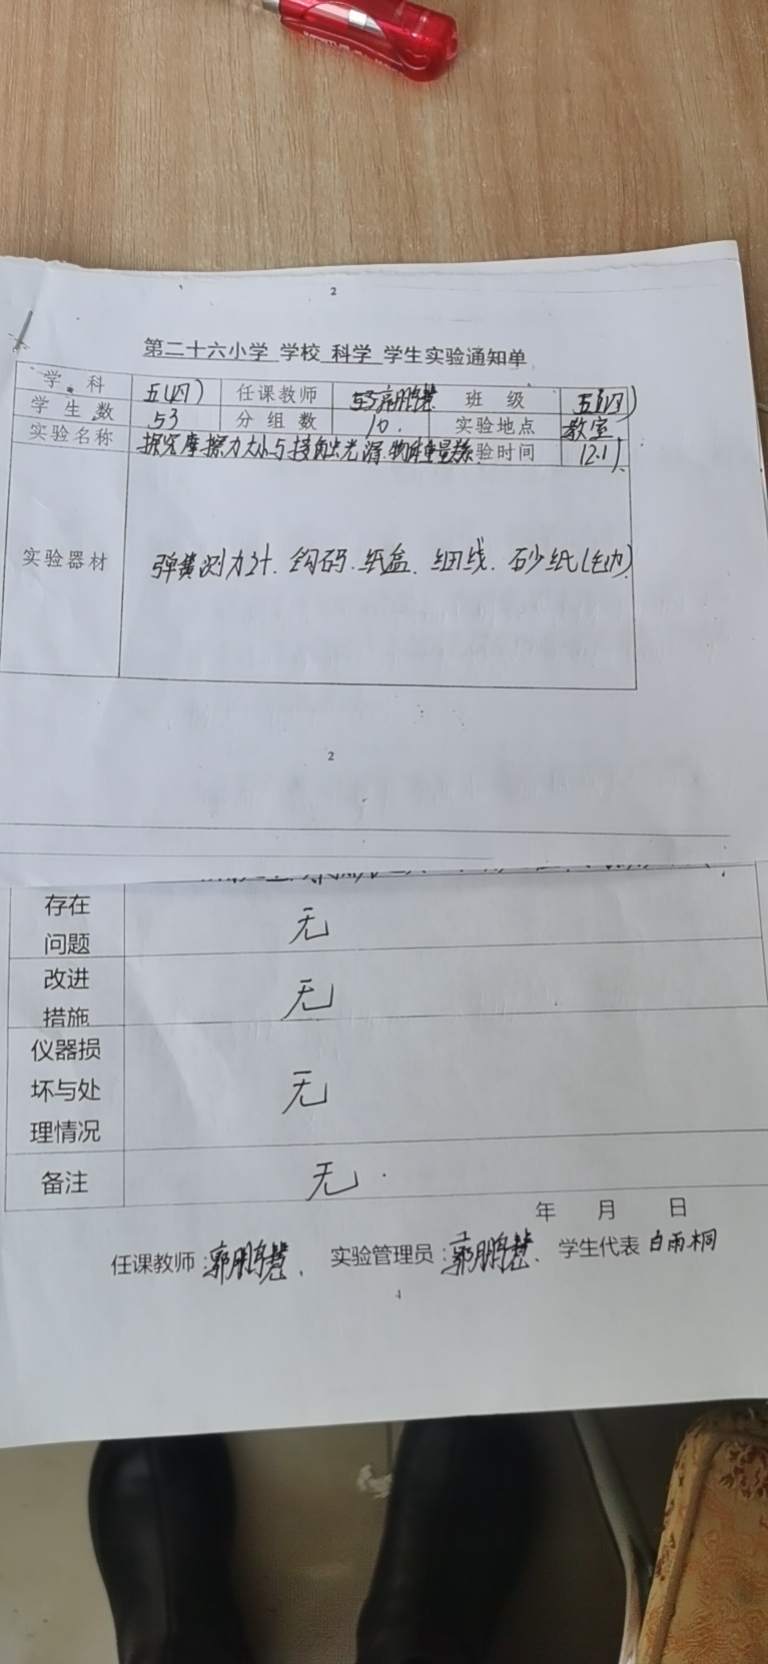 2
第二十六小学 学校 科学 学生实验通知单
学科 五(四) 任课教师 郭鹏慧 班级 五(四)
学生数 53 分组数 10. 实验地点 教室
实验名称 探究摩擦力大小与接触面光滑.物体重量关系 验时间 12.1
实验器材 弹簧测力计.钩码.纸盒.细线.砂纸(自助)
2
存在
问题 无
改进
措施 无
仪器损
坏与处 无
理情况
备注 无.
年 月 日
任课教师:郭鹏慧. 实验管理员:郭鹏慧. 学生代表 白雨桐
4